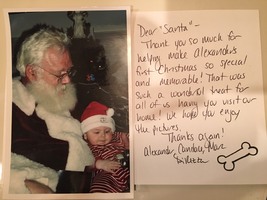 Dear "Santa" -
Thank you so much for
helping make Alexander's
first Christmas so special
and memorable! That was
such a wonderful treat for
all of us having you visit our
home! We hope you enjoy
the pictures.
Thanks again!
Alexander, Candace, Marc